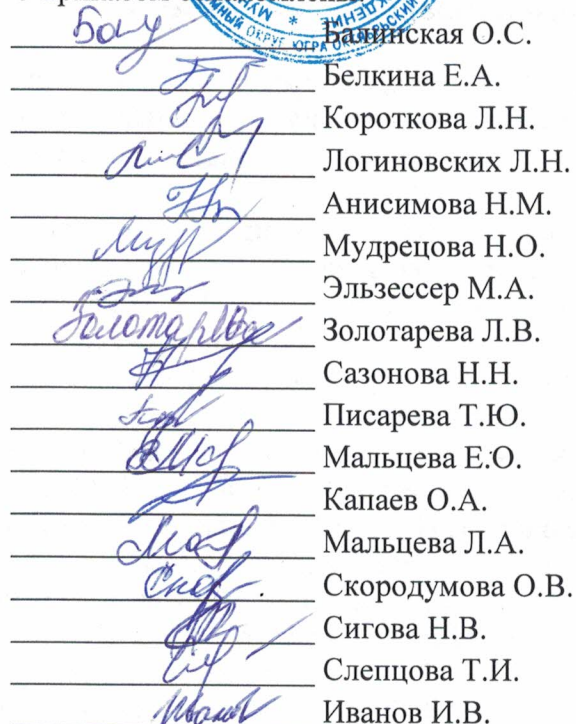 Балинская О.С.
Белкина Е.А.
Короткова Л.Н.
Логиновских Л.Н.
Анисимова Н.М.
Мудрецова Н.О.
Эльзессер М.А.
Золотарева Золотарева Л.В.
Сазонова Н.Н.
Писарева Т.Ю.
Мальцева Е.О.
Капаев О.А.
Мальцева Л.А.
Скородумова О.В.
Сигова Н.В.
Слепцова Т.И.
Иванов И.В.